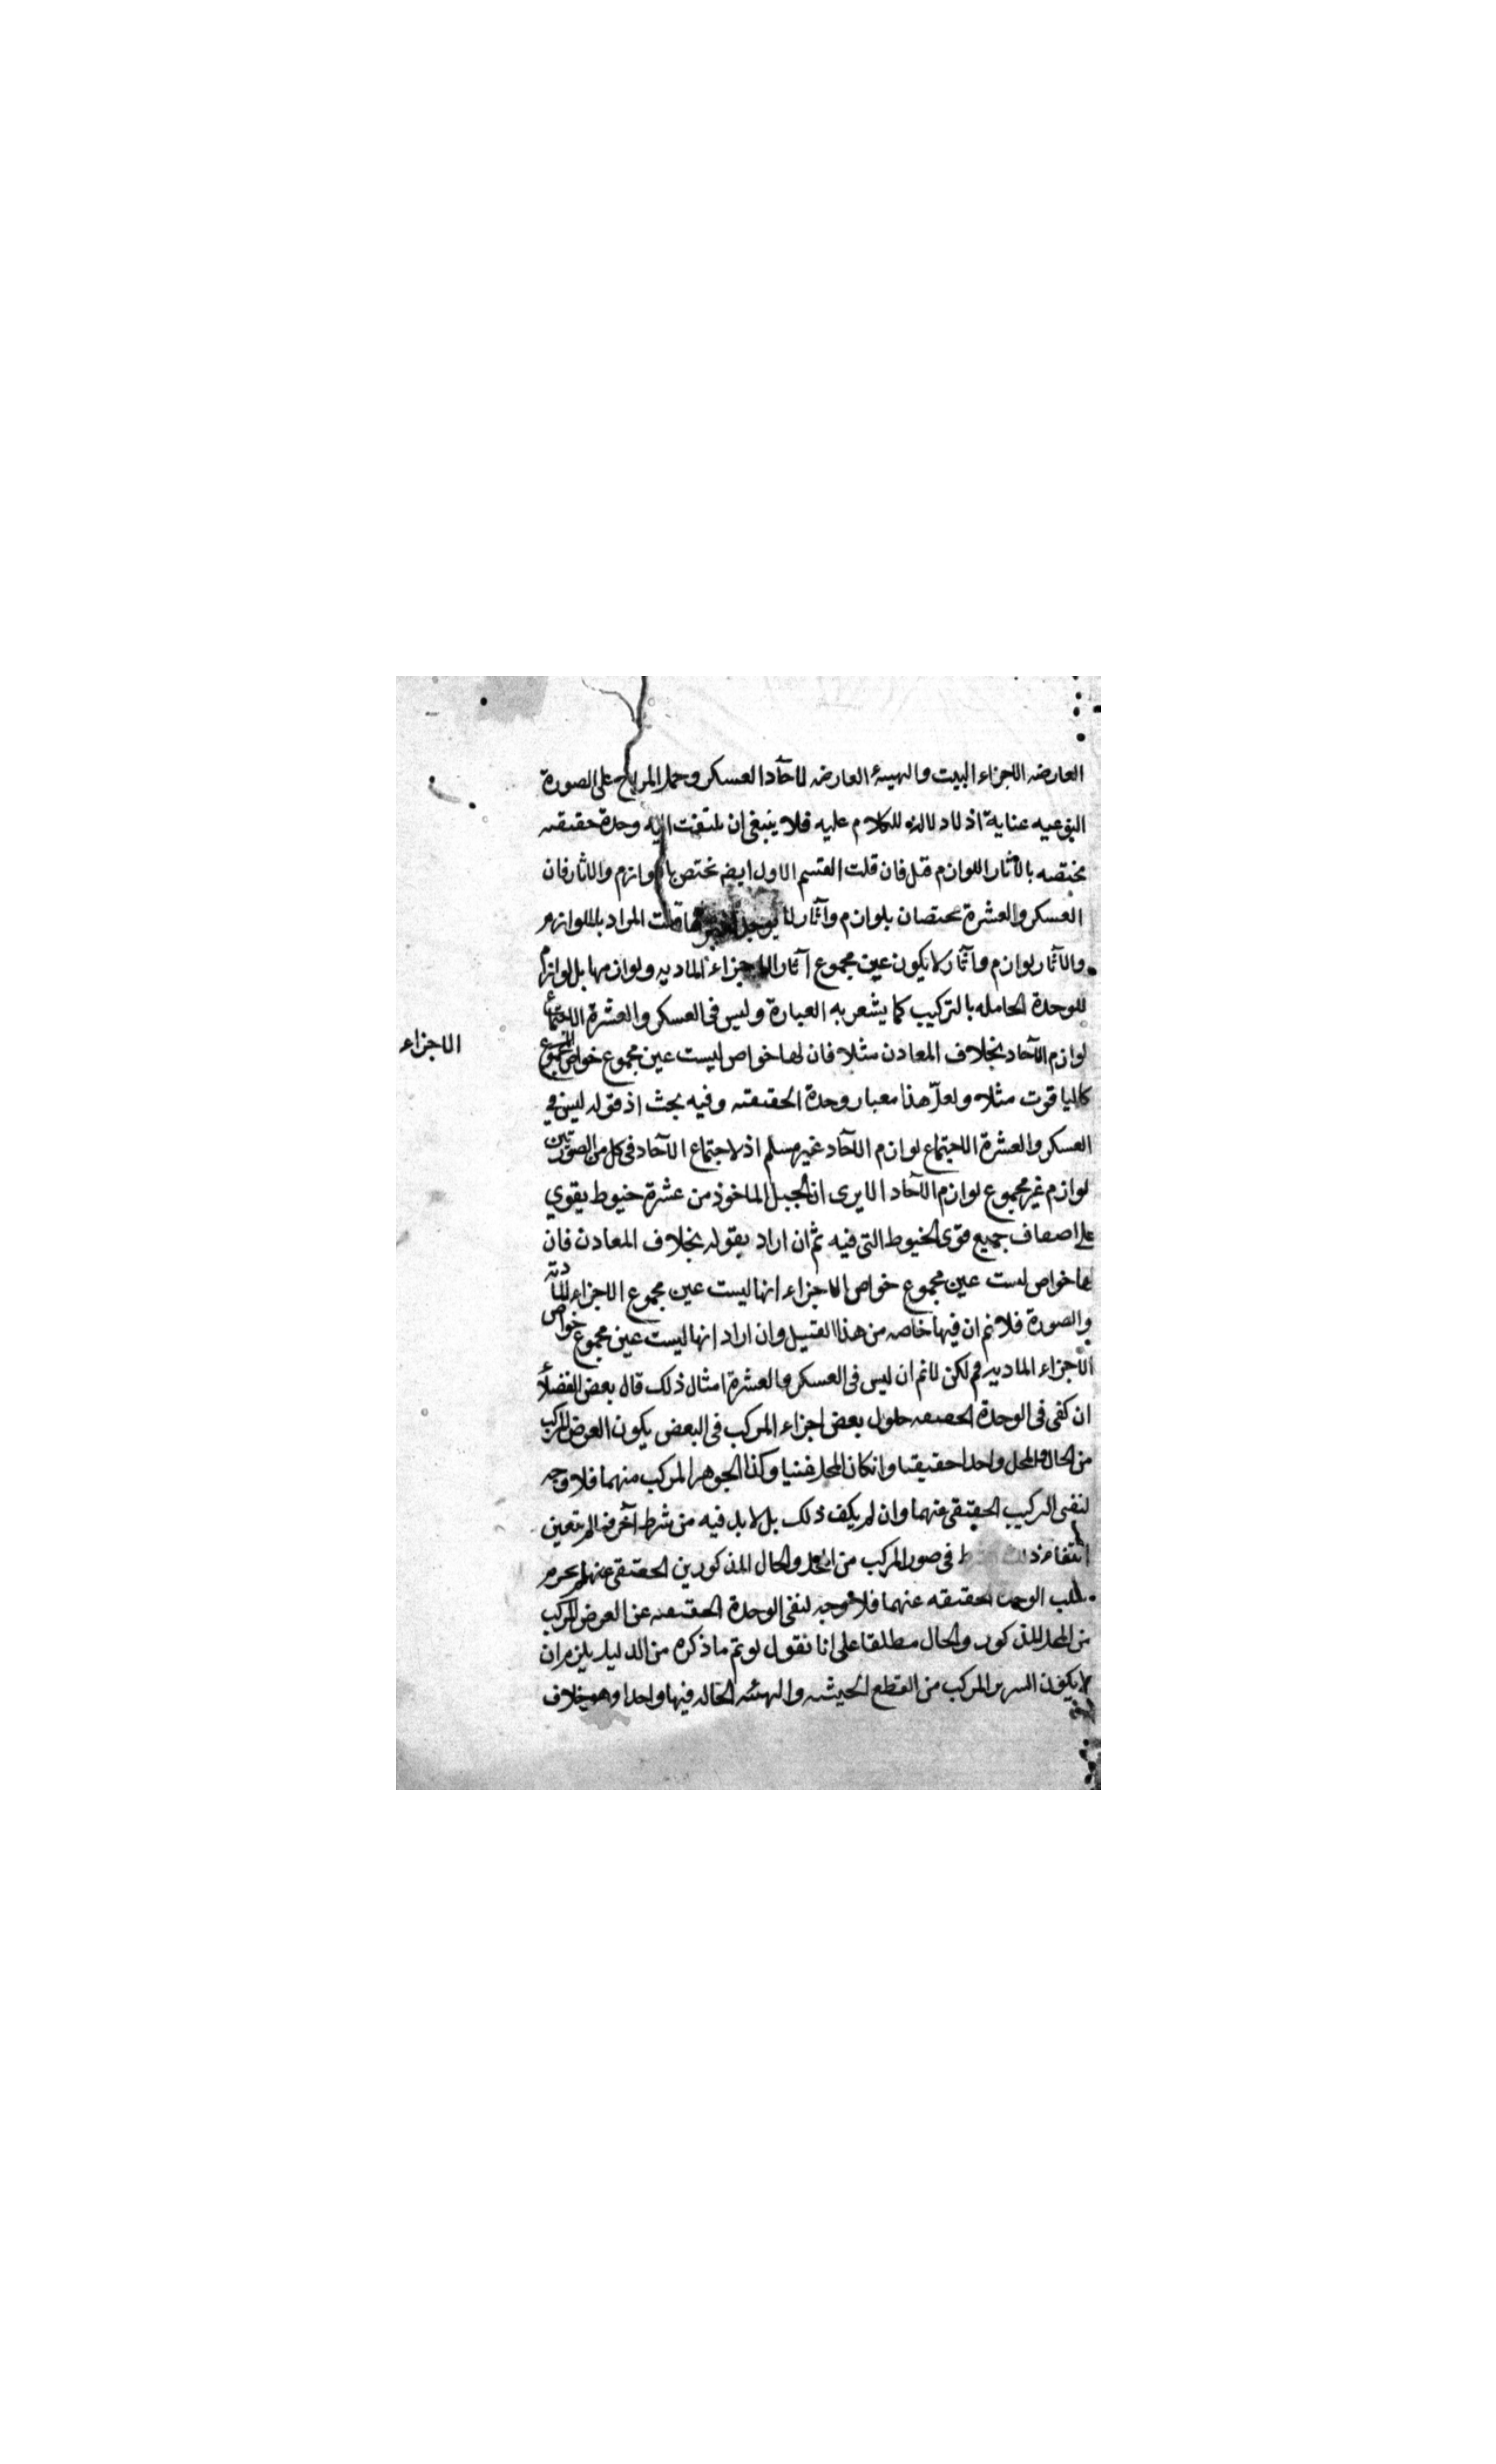 العارضه لاجزاء البيت والهيئة العارضه لاحآد العسكر وحمل المزاج على الصورة
النوعيه عناية اذ لا دلالة للكلام عليه فلا ينبغى ان يلتفت اليه وحدة حقيقته
مختصه بالآثار اللوازم قيل فان قلت القسم الاول ايضه تختص باللوازم والاثار فان
العسكر والعشرة مختصان بلوازم وآثار لا يوجد قلت المراد باللوازم
والآثار لوازم وآثار لا يكون عين مجموع آثار الاجزاء الماديه ولوازمها بل لوازم
للوحدة الحاصله بالتركيب كما يشعر به العبارة وليس فى العسكر والعشرة الا اجتماع
لوازم الآحاد بخلاف المعادن مثلا فان لها خواص ليست عين مجموع خواص
الاجزاء
كالياقوت مثلا ولعل هذا معيار وحدة الحقيقته وفيه بحث اذ قوله ليس فى
العسكر والعشرة الا اجتماع لوازم الآحاد غير مسلم اذ لاجتماع الآحاد فى كل من الصورتين
لوازم غير مجموع لوازم الآحاد الا يرى ان الحبل الماخوذ من عشرة خيوط يقوي
على اضعاف جميع قوى الخيوط التى فيه ثم ان اراد بقوله بخلاف المعادن فان
لها خواص ليست عين مجموع خواص الاجزاء انها ليست عين مجموع الاجزاء المادية
والصورة فلا نم ان فيها خاصه من هذا القبيل وان اراد انها ليست عين مجموع خواص
الاجزاء الماديه فم لكن لا نم ان ليس فى العسكر والعشرة امثال ذلك قال بعض الفضلاء
ان كفى فى الوحدة الحقيقيه حلول بعض اجزاء المركب فى البعض يكون العرض المركب
من الحال والمحل واحدا حقيقيا وانكان المحل غنيا وكذا الجوهر المركب منهما فلا وجه
لنفى التركيب الحقيقى عنهما وان لم يكف ذلك بل لا بد فيه من شرط آخر فما لم يتعين
انتفاء ذلك فى صور المركب من المحل والحال المذكورين الحقيقى عنهما لم يحرم
سلب الوحدة الحقيقه عنهما فلا وجه لنفى الوحدة الحقيقيه عن العرض المركب
من المحل المذكور والحال مطلقا على انا نقول لو تم ما ذكره من الدليل يلزم ان
لا يكون السرير المركب من القطع الخشبيه والهيئه الحاله فيها واحدا وهو خلاف